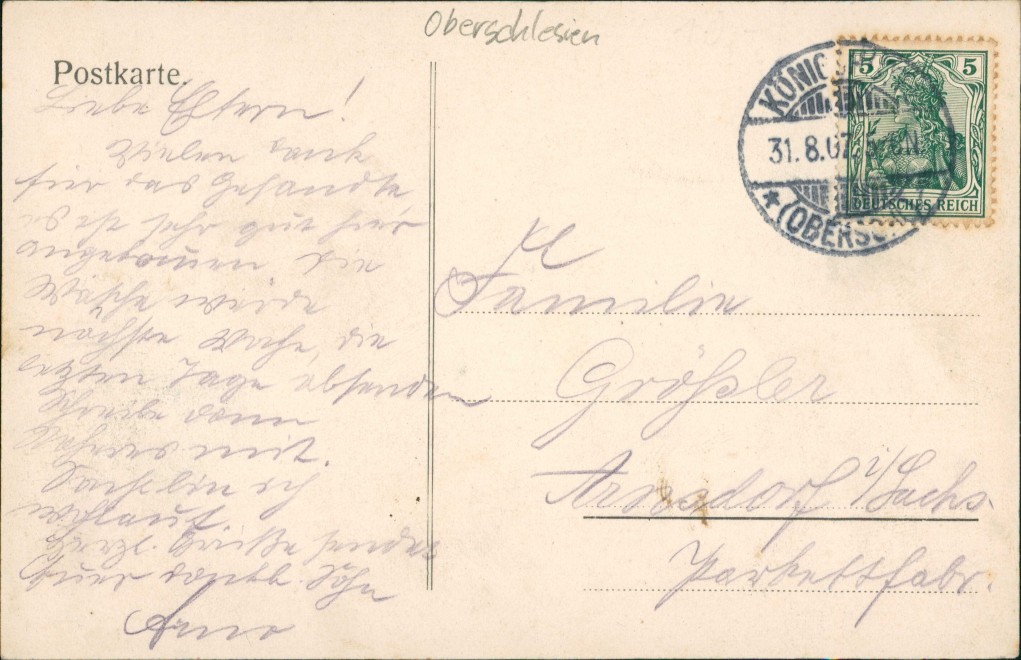 Oberschlesien
Postkarte.
Liebe Eltern!
Vielen Dank
für das Gesandte,
es ist sehr gut hier
angekommen. Die
Wäsche werde
nächste Woche, die
letzten Tage absenden
Schreibe dann
Näheres mit.
bin ich
wohlauf.
Herzl. Grüße sendet
Euer dankb. Sohn
Arno
KÖNIG
31.8.07. 5-6N.
* (OBERSCH
5 5
DEUTSCHES REICH
Familie
Größler
Arnsdorf i/Sachs.
Parkettfabr.